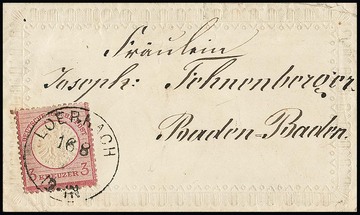 Fräulein
Joseph: Fehrenberger
Baden-Baden.
LOERRACH
16 8
3 KREUZER 3